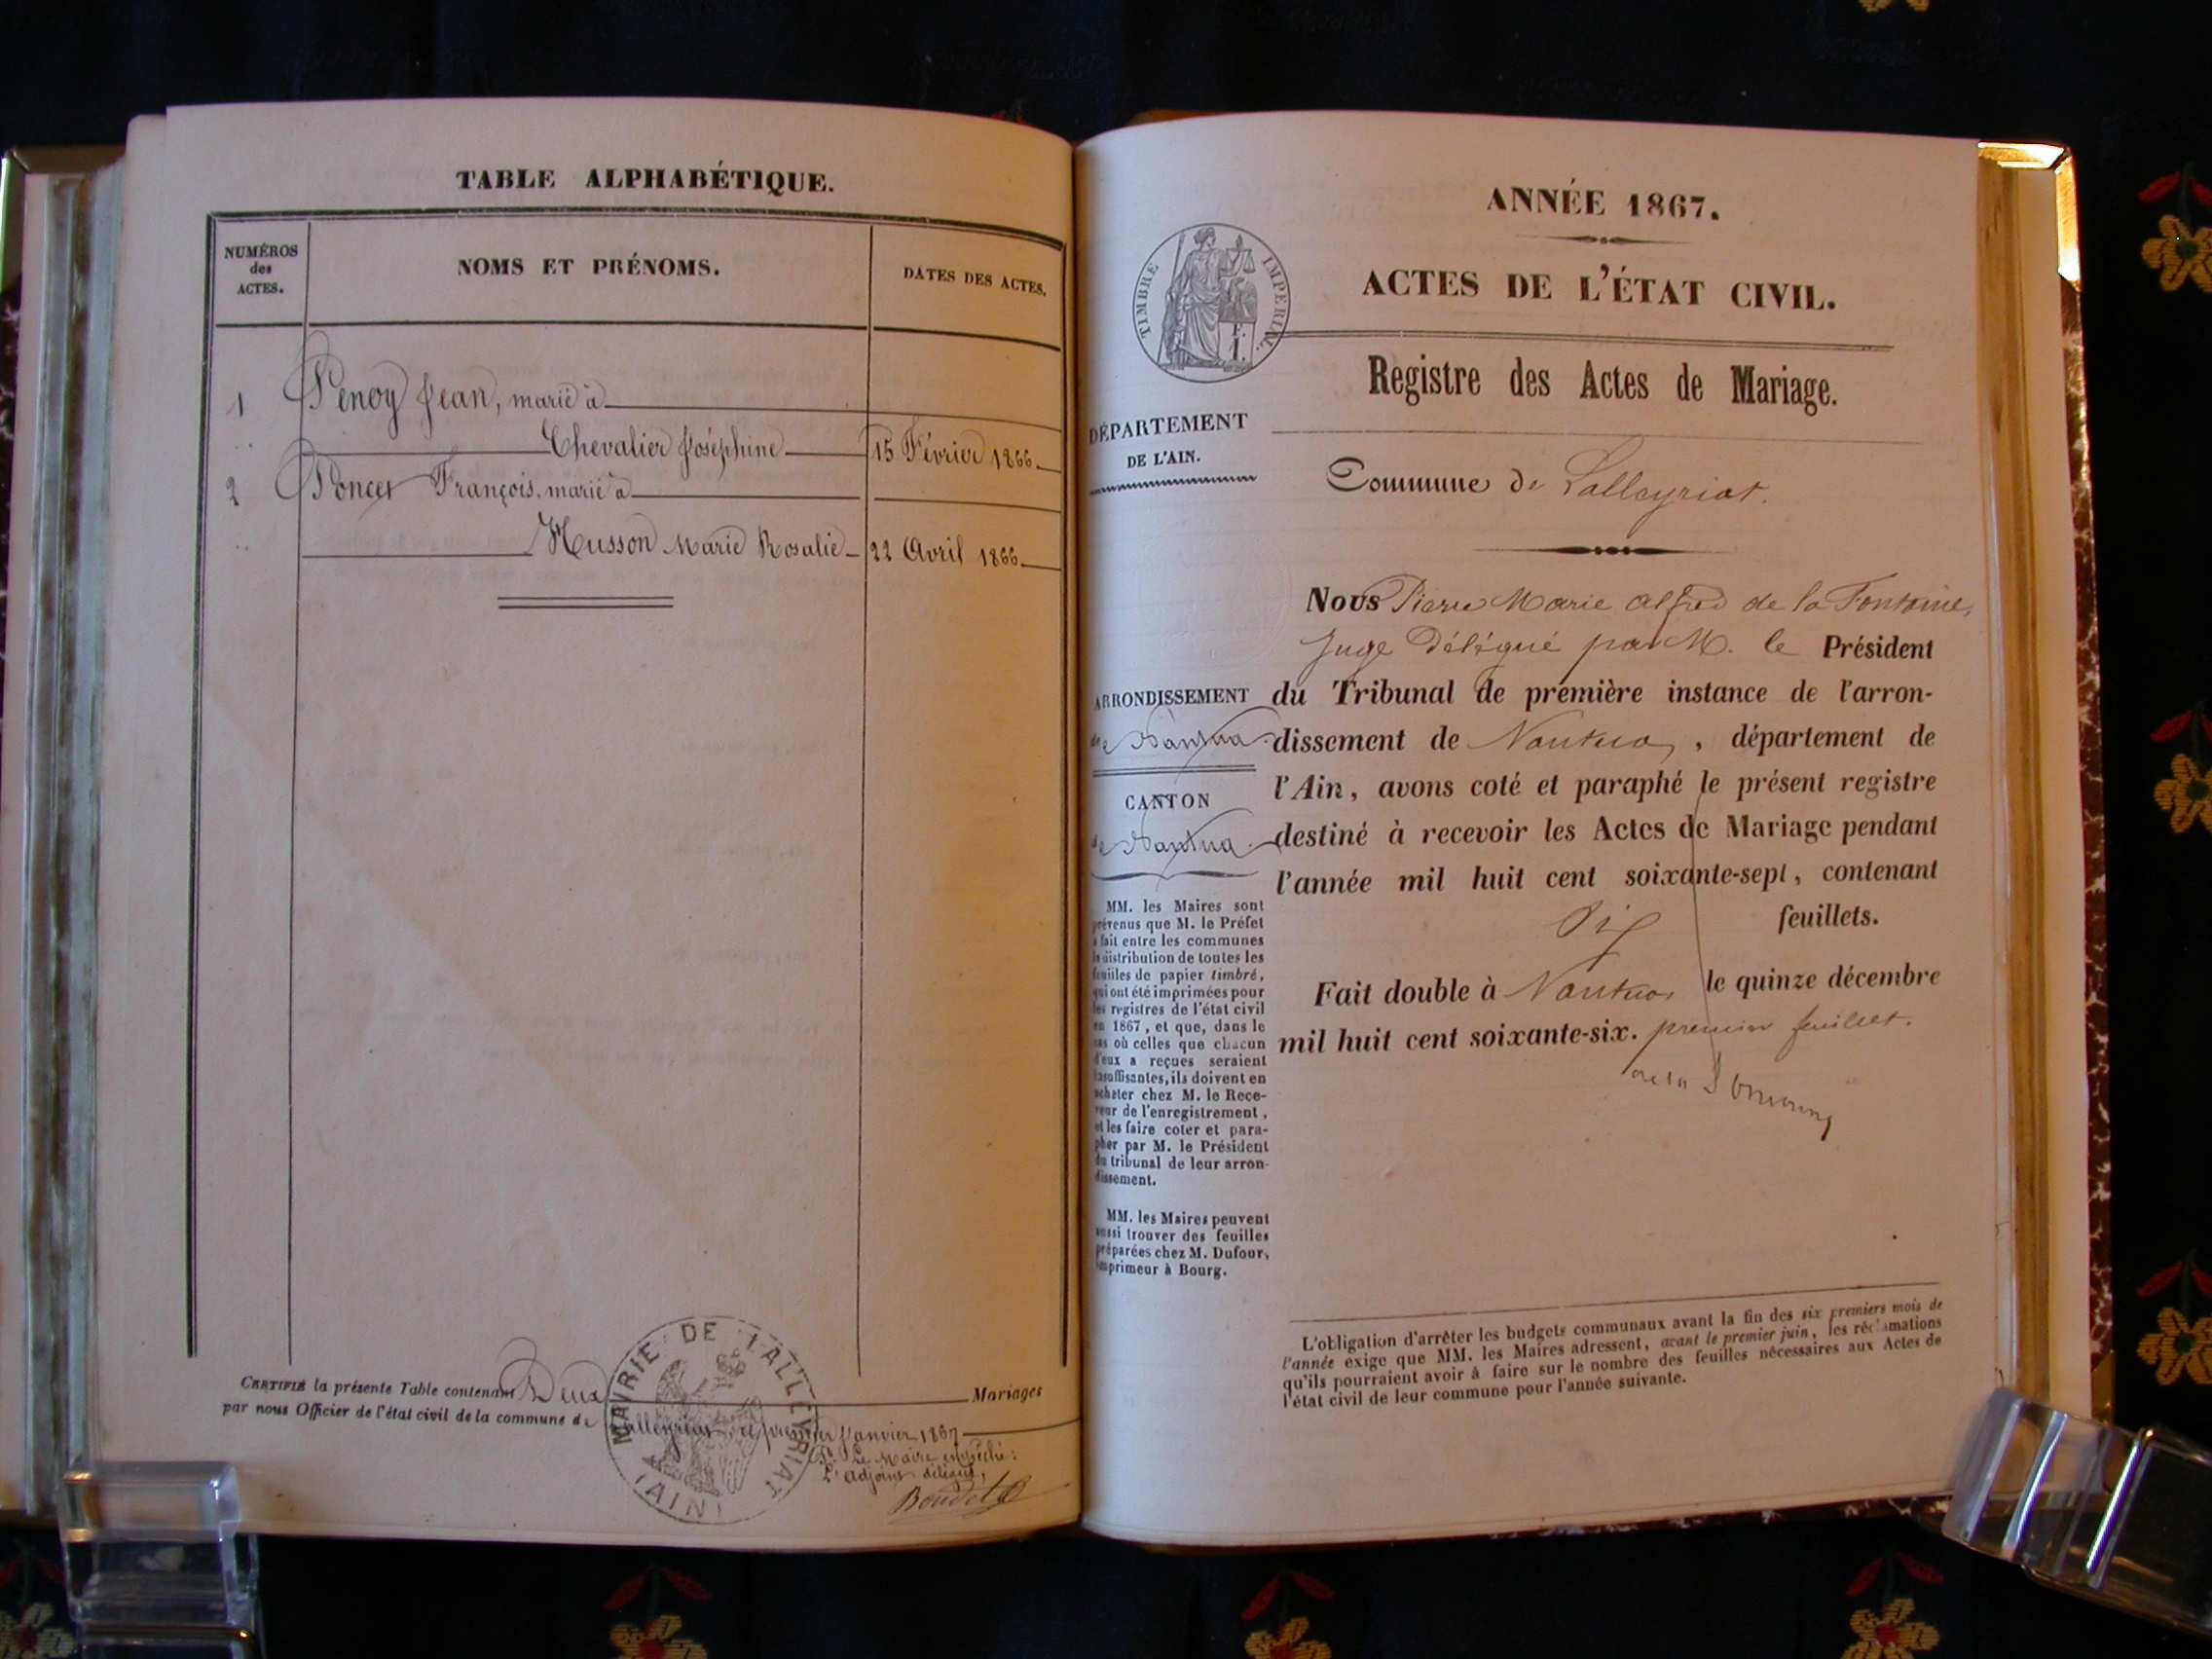 TABLE ALPHABÉTIQUE.
NUMÉROS
des
ACTES.
NOMS ET PRÉNOMS.
DATES DES ACTES.
1 Penoy Jean, marié à
Chevalier Joséphine 15 Février 1866
2 Poncet François, marié à
Husson Marie Rosalie 22 Avril 1866
CERTIFIÉ la présente Table contenant Deux Mariages
par nous Officier de l'état civil de la commune de
Lalleyriat, le premier Janvier 1867
Pr. Le Maire empêché:
L'adjoint délégué,
MAIRIE DE LALLEYRIAT
(AIN)
ANNÉE 1867.
ACTES DE L'ÉTAT CIVIL.
TIMBRE IMPÉRIAL.
Registre des Actes de Mariage.
DÉPARTEMENT
DE L'AIN.
Commune de Lalleyriat.
Nous Pierre Marie Alfred de la Fontaine,
Juge Délégué par M. le Président
du Tribunal de première instance de l'arron-
dissement de Nantua, département de
l'Ain, avons coté et paraphé le présent registre
destiné à recevoir les Actes de Mariage pendant
l'année mil huit cent soixante-sept, contenant
Six feuillets.
Fait double à Nantua, le quinze décembre
mil huit cent soixante-six. premier feuillet.
ARRONDISSEMENT
de Nantua.
CANTON
de Nantua.
MM. les Maires sont
prévenus que M. le Préfet
a fait entre les communes
la distribution de toutes les
feuilles de papier timbré,
qui ont été imprimées pour
les registres de l'état civil
en 1867, et que, dans le
cas où celles que chacun
d'eux a reçues seraient
insuffisantes, ils doivent en
acheter chez M. le Rece-
veur de l'enregistrement,
et les faire coter et para-
pher par M. le Président
du tribunal de leur arron-
dissement.
MM. les Maires peuvent
aussi trouver des feuilles
préparées chez M. Dufour,
imprimeur à Bourg.
L'obligation d'arrêter les budgets communaux avant la fin des six premiers mois de
l'année exige que MM. les Maires adressent, avant le premier juin, les réclamations
qu'ils pourraient avoir à faire sur le nombre des feuilles nécessaires aux Actes de
l'état civil de leur commune pour l'année suivante.